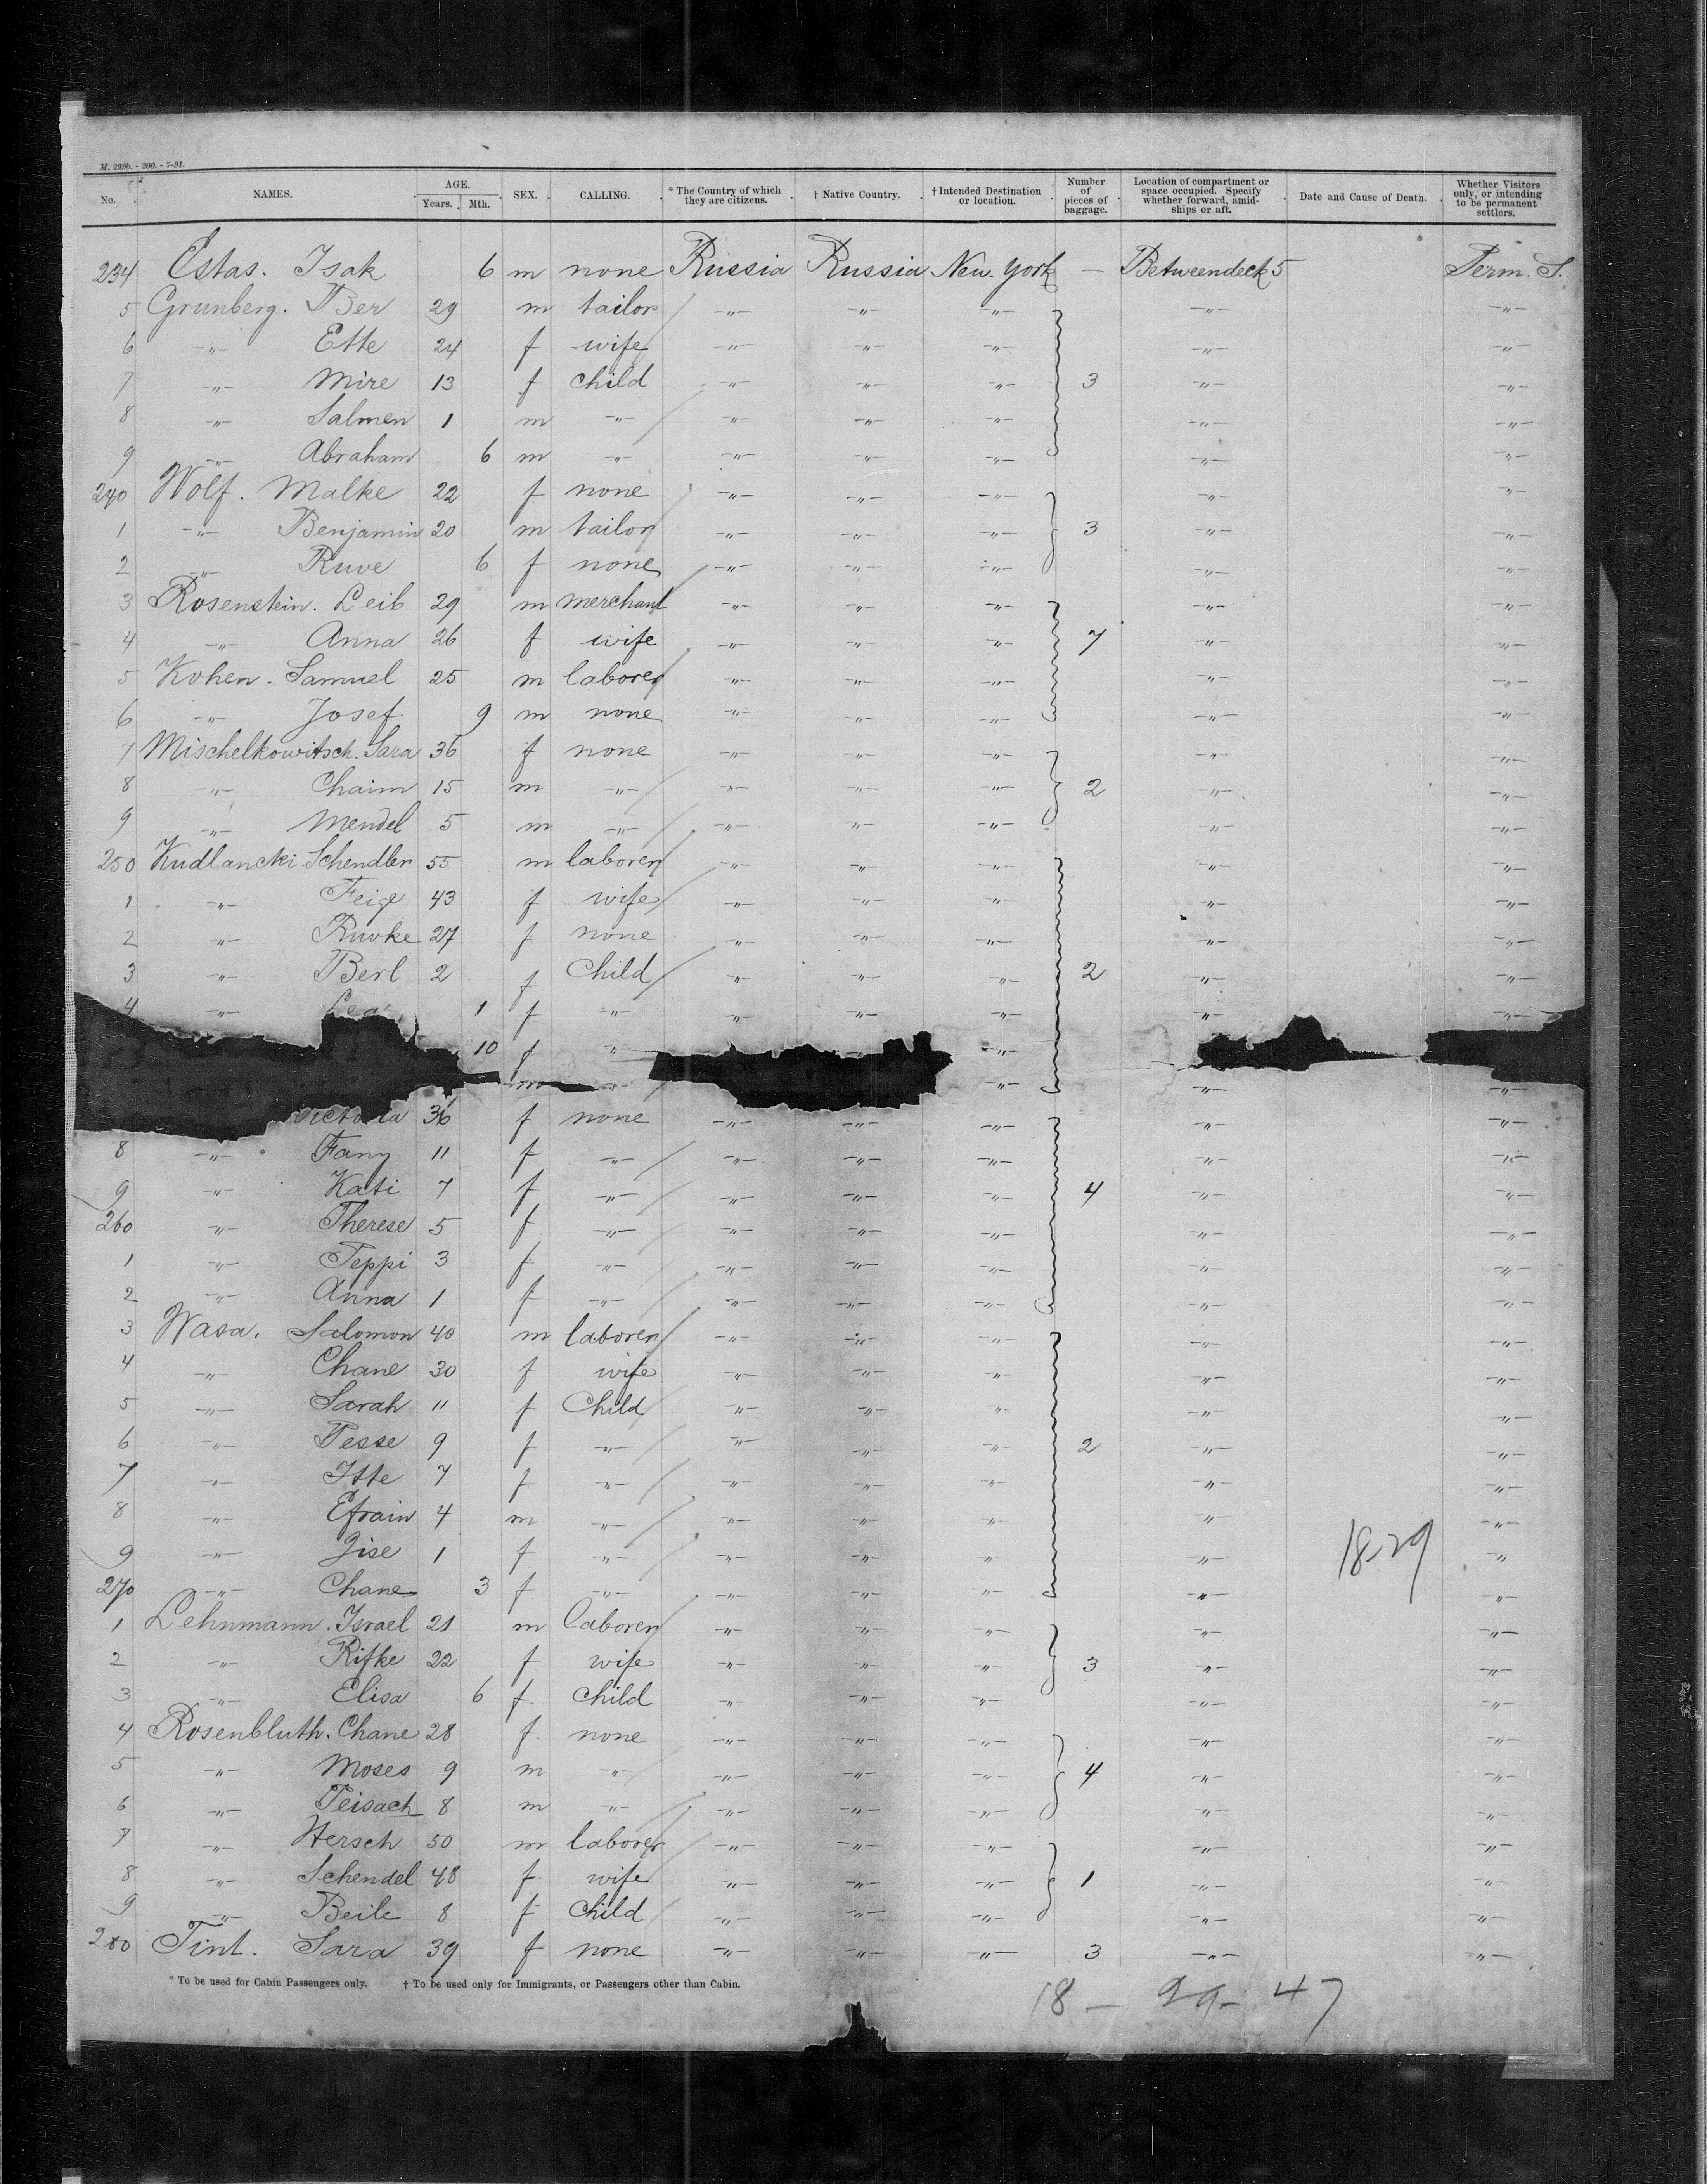 M. 299b. - 200. - 7-91.
No. NAMES. AGE. Years. Mth. SEX. CALLING. * The Country of which they are citizens. † Native Country. † Intended Destination or location. Number of pieces of baggage. Location of compartment or space occupied. Specify whether forward, amidships or aft. Date and Cause of Death. Whether Visitors only, or intending to be permanent settlers.
234 Estas. Isak 6 m none Russia Russia New. York — Betweendeck 5 Perm. S.
5 Grunberg. Ber 29 m tailor -"- -"- -"- -"- -"-
6 -"- Ette 24 f wife -"- -"- -"- -"- -"-
7 -"- Mire 13 f child -"- -"- -"- 3 -"- -"-
8 -"- Salmen 1 m -"- -"- -"- -"- -"- -"-
9 -"- Abraham 6 m -"- -"- -"- -"- -"- -"-
240 Wolf. Malke 22 f none -"- -"- -"- -"- -"-
1 -"- Benjamin 20 m tailor -"- -"- -"- 3 -"- -"-
2 -"- Ruve 6 f none -"- -"- -"- -"- -"-
3 Rosenstein. Leib 29 m merchant -"- -"- -"- -"- -"-
4 -"- Anna 26 f wife -"- -"- -"- 7 -"- -"-
5 Kohen. Samuel 25 m laborer -"- -"- -"- -"- -"-
6 -"- Josef 9 m none -"- -"- -"- -"- -"-
7 Mischelkowitsch. Sara 36 f none -"- -"- -"- -"- -"-
8 -"- Chaim 15 m -"- -"- -"- -"- 2 -"- -"-
9 -"- Mendel 5 m -"- -"- -"- -"- -"- -"-
250 Kudlancki Schendler 55 m laborer -"- -"- -"- -"- -"-
1 -"- Feige 43 f wife -"- -"- -"- -"- -"-
2 -"- Ruvke 27 f none -"- -"- -"- -"- -"-
3 -"- Berl 2 f Child -"- -"- -"- 2 -"- -"-
4 -"- Lea 1 f -"- -"- -"- -"- -"- -"-
10 f -"- -"-
m -"- -"- -"- -"-
Victoria 36 f none -"- -"- -"- -"- -"-
8 -"- Fany 11 f -"- -"- -"- -"- -"- -"-
9 -"- Kati 7 f -"- -"- -"- -"- 4 -"- -"-
260 -"- Therese 5 f -"- -"- -"- -"- -"- -"-
1 -"- Peppi 3 f -"- -"- -"- -"- -"- -"-
2 -"- Anna 1 f -"- -"- -"- -"- -"- -"-
3 Wasa. Salomon 40 m laborer -"- -"- -"- -"- -"-
4 -"- Chane 30 f wife -"- -"- -"- -"- -"-
5 -"- Sarah 11 f Child -"- -"- -"- -"- -"-
6 -"- Pesse 9 f -"- -"- -"- -"- 2 -"- -"-
7 -"- Itte 7 f -"- -"- -"- -"- -"- -"-
8 -"- Efraim 4 m -"- -"- -"- -"- -"- -"-
9 -"- Gise 1 f -"- -"- -"- -"- -"- 18-29 -"-
270 -"- Chane 3 f -"- -"- -"- -"- -"- -"-
1 Lehnmann. Israel 21 m laborer -"- -"- -"- -"- -"-
2 -"- Rifke 22 f wife -"- -"- -"- 3 -"- -"-
3 -"- Elisa 6 f. child -"- -"- -"- -"- -"-
4 Rosenbluth. Chane 28 f. none -"- -"- -"- -"- -"-
5 -"- Moses 9 m -"- -"- -"- -"- 4 -"- -"-
6 -"- Peisach 8 m -"- -"- -"- -"- -"- -"-
7 -"- Hersch 50 m laborer -"- -"- -"- -"- -"-
8 -"- Schendel 48 f wife -"- -"- -"- 1 -"- -"-
9 -"- Beile 8 f child -"- -"- -"- -"- -"-
280 Tint. Sara 39 f none -"- -"- -"- 3 -"- -"-
* To be used for Cabin Passengers only. † To be used only for Immigrants, or Passengers other than Cabin.
18 - 29 - 47